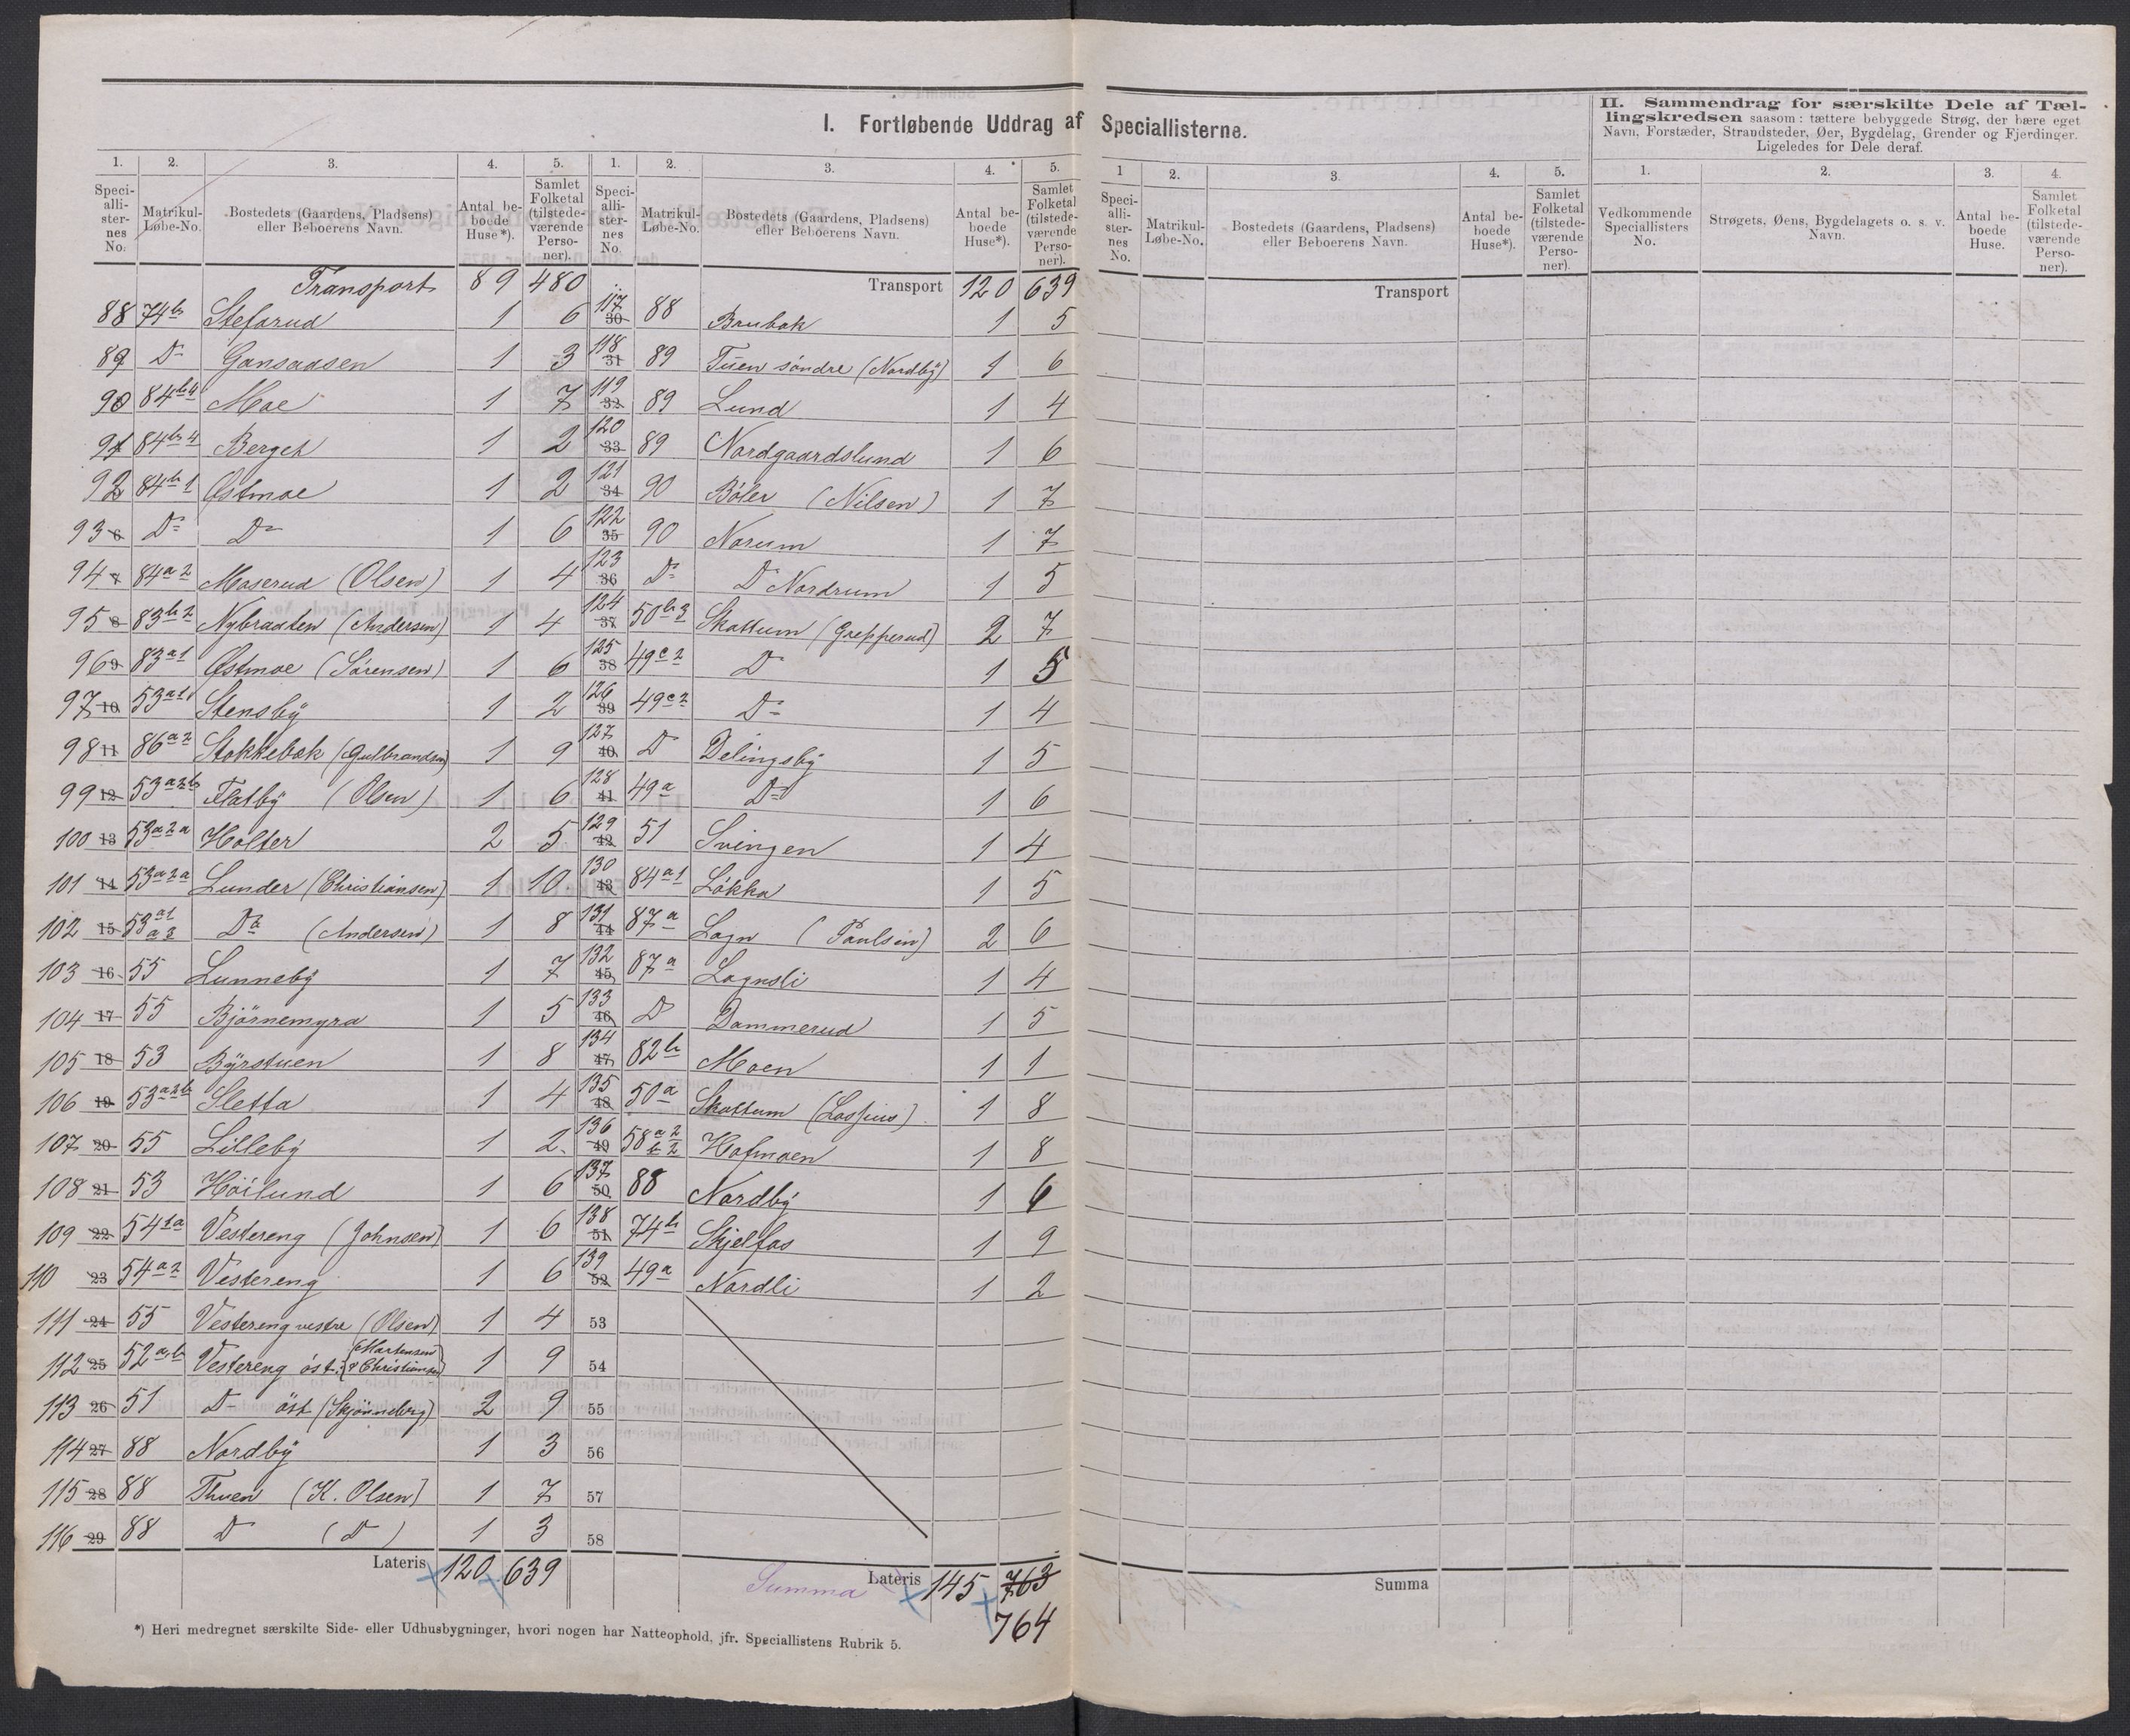 I. Fortløbende Uddrag af Speciallisterne.
II. Sammendrag for særskilte Dele af Tællingskredsen saasom: tættere bebyggede Strøg, der bære eget Navn, Forstæder, Strandsteder, Øer, Bygdelag, Grender og Fjerdinger. Ligeledes for Dele deraf.
1. 2. 3. 4. 5. 1. 2. 3. 4. 5. 1 2. 3. 4. 5. 1. 2. 3. 4.
Speciallisternes No. Matrikul-Løbe-No. Bostedets (Gaardens, Pladsens) eller Beboerens Navn. Antal beboede Huse*). Samlet Folketal (tilstedeværende Personer).
Speciallisternes No. Matrikul-Løbe-No. Bostedets (Gaardens, Pladsens) eller Beboerens Navn. Antal beboede Huse*). Samlet Folketal (tilstedeværende Personer).
Speciallisternes No. Matrikul-Løbe-No. Bostedets (Gaardens, Pladsens) eller Beboerens Navn. Antal beboede Huse*). Samlet Folketal (tilstedeværende Personer).
Vedkommende Speciallisters No. Strøgets, Øens, Bygdelagets o. s. v. Navn. Antal beboede Huse. Samlet Folketal (tilstedeværende Personer).
Transport 89 480
88 74b Stefarud 1 6
89 Do Gansaasen 1 3
90 84b4 Moe 1 7
91 84b4 Berget 1 2
92 84b1 Østmoe 1 2
93 6 Do Do 1 6
94 7 84a2 Moserud (Olsen) 1 4
95 8 83b2 Nybraaten (Andersen) 1 4
96 9 83a1 Østmoe (Sørensen) 1 6
97 10 53a1 Stensbÿ 1 2
98 11 86a2 Stokkebæk (Gulbrandsen) 1 9
99 12 53a2b Flatbÿ (Olsen) 1 6
100 13 53a2a Holter 2 5
101 14 53a2a Lunder (Christiansen) 1 10
102 15 53a1 a3 Do (Andersen) 1 8
103 16 55 Lunnebÿ 1 7
104 17 55 Bjørnemyra 1 5
105 18 53 Bÿrstuen 1 8
106 19 53a2b Sletta 1 4
107 20 55 Lillebÿ 1 2
108 21 53 Høilund 1 6
109 22 54 1a Vestereng (Johnsen) 1 6
110 23 54a2 Vestereng 1 6
111 24 55 Vestereng vestre (Olsen) 1 4
112 25 52a,b Vestereng øst. (Martensen & Christiansen) 1 9
113 26 51 Do øst (Skjønneberg) 2 9
114 27 88 Nordbÿ 1 3
115 28 88 Thuen (K. Olsen) 1 7
116 29 88 D (D) 1 3
Lateris 120 639
Transport 120 639
117 30 88 Brubak 1 5
118 31 89 Tuen søndre (Nordbÿ) 1 6
119 32 89 Lund 1 4
120 33 89 Nordgaardslund 1 6
121 34 90 Bøler (Nilsen) 1 7
122 35 90 Norum 1 7
123 36 Do Do Nordrum 1 5
124 37 50b3 Skottum (Grepperud) 2 7
125 38 49c2 D 1 5
126 39 49c2 Do 1 4
127 40 D Delingsbÿ 1 5
128 41 49a Do 1 6
129 42 51 Svingen 1 4
130 43 84a1 Løkka 1 5
131 44 87a Logn (Paulsen) 2 6
132 45 87a Lognsli 1 4
133 46 D Dammerud 1 5
134 47 82b Moen 1 1
135 48 50a Skottum (Lossius) 1 8
136 49 58a2 b2 Hofmoen 1 8
137 50 88 Nordbÿ 1 6
138 51 74b Skjelfos 1 9
139 52 49a Nordli 1 2
53
54
55
56
57
58
Summa Lateris 145 763
764
Transport
Summa
*) Heri medregnet særskilte Side- eller Udhusbygninger, hvori nogen har Natteophold, jfr. Speciallistens Rubrik 5.